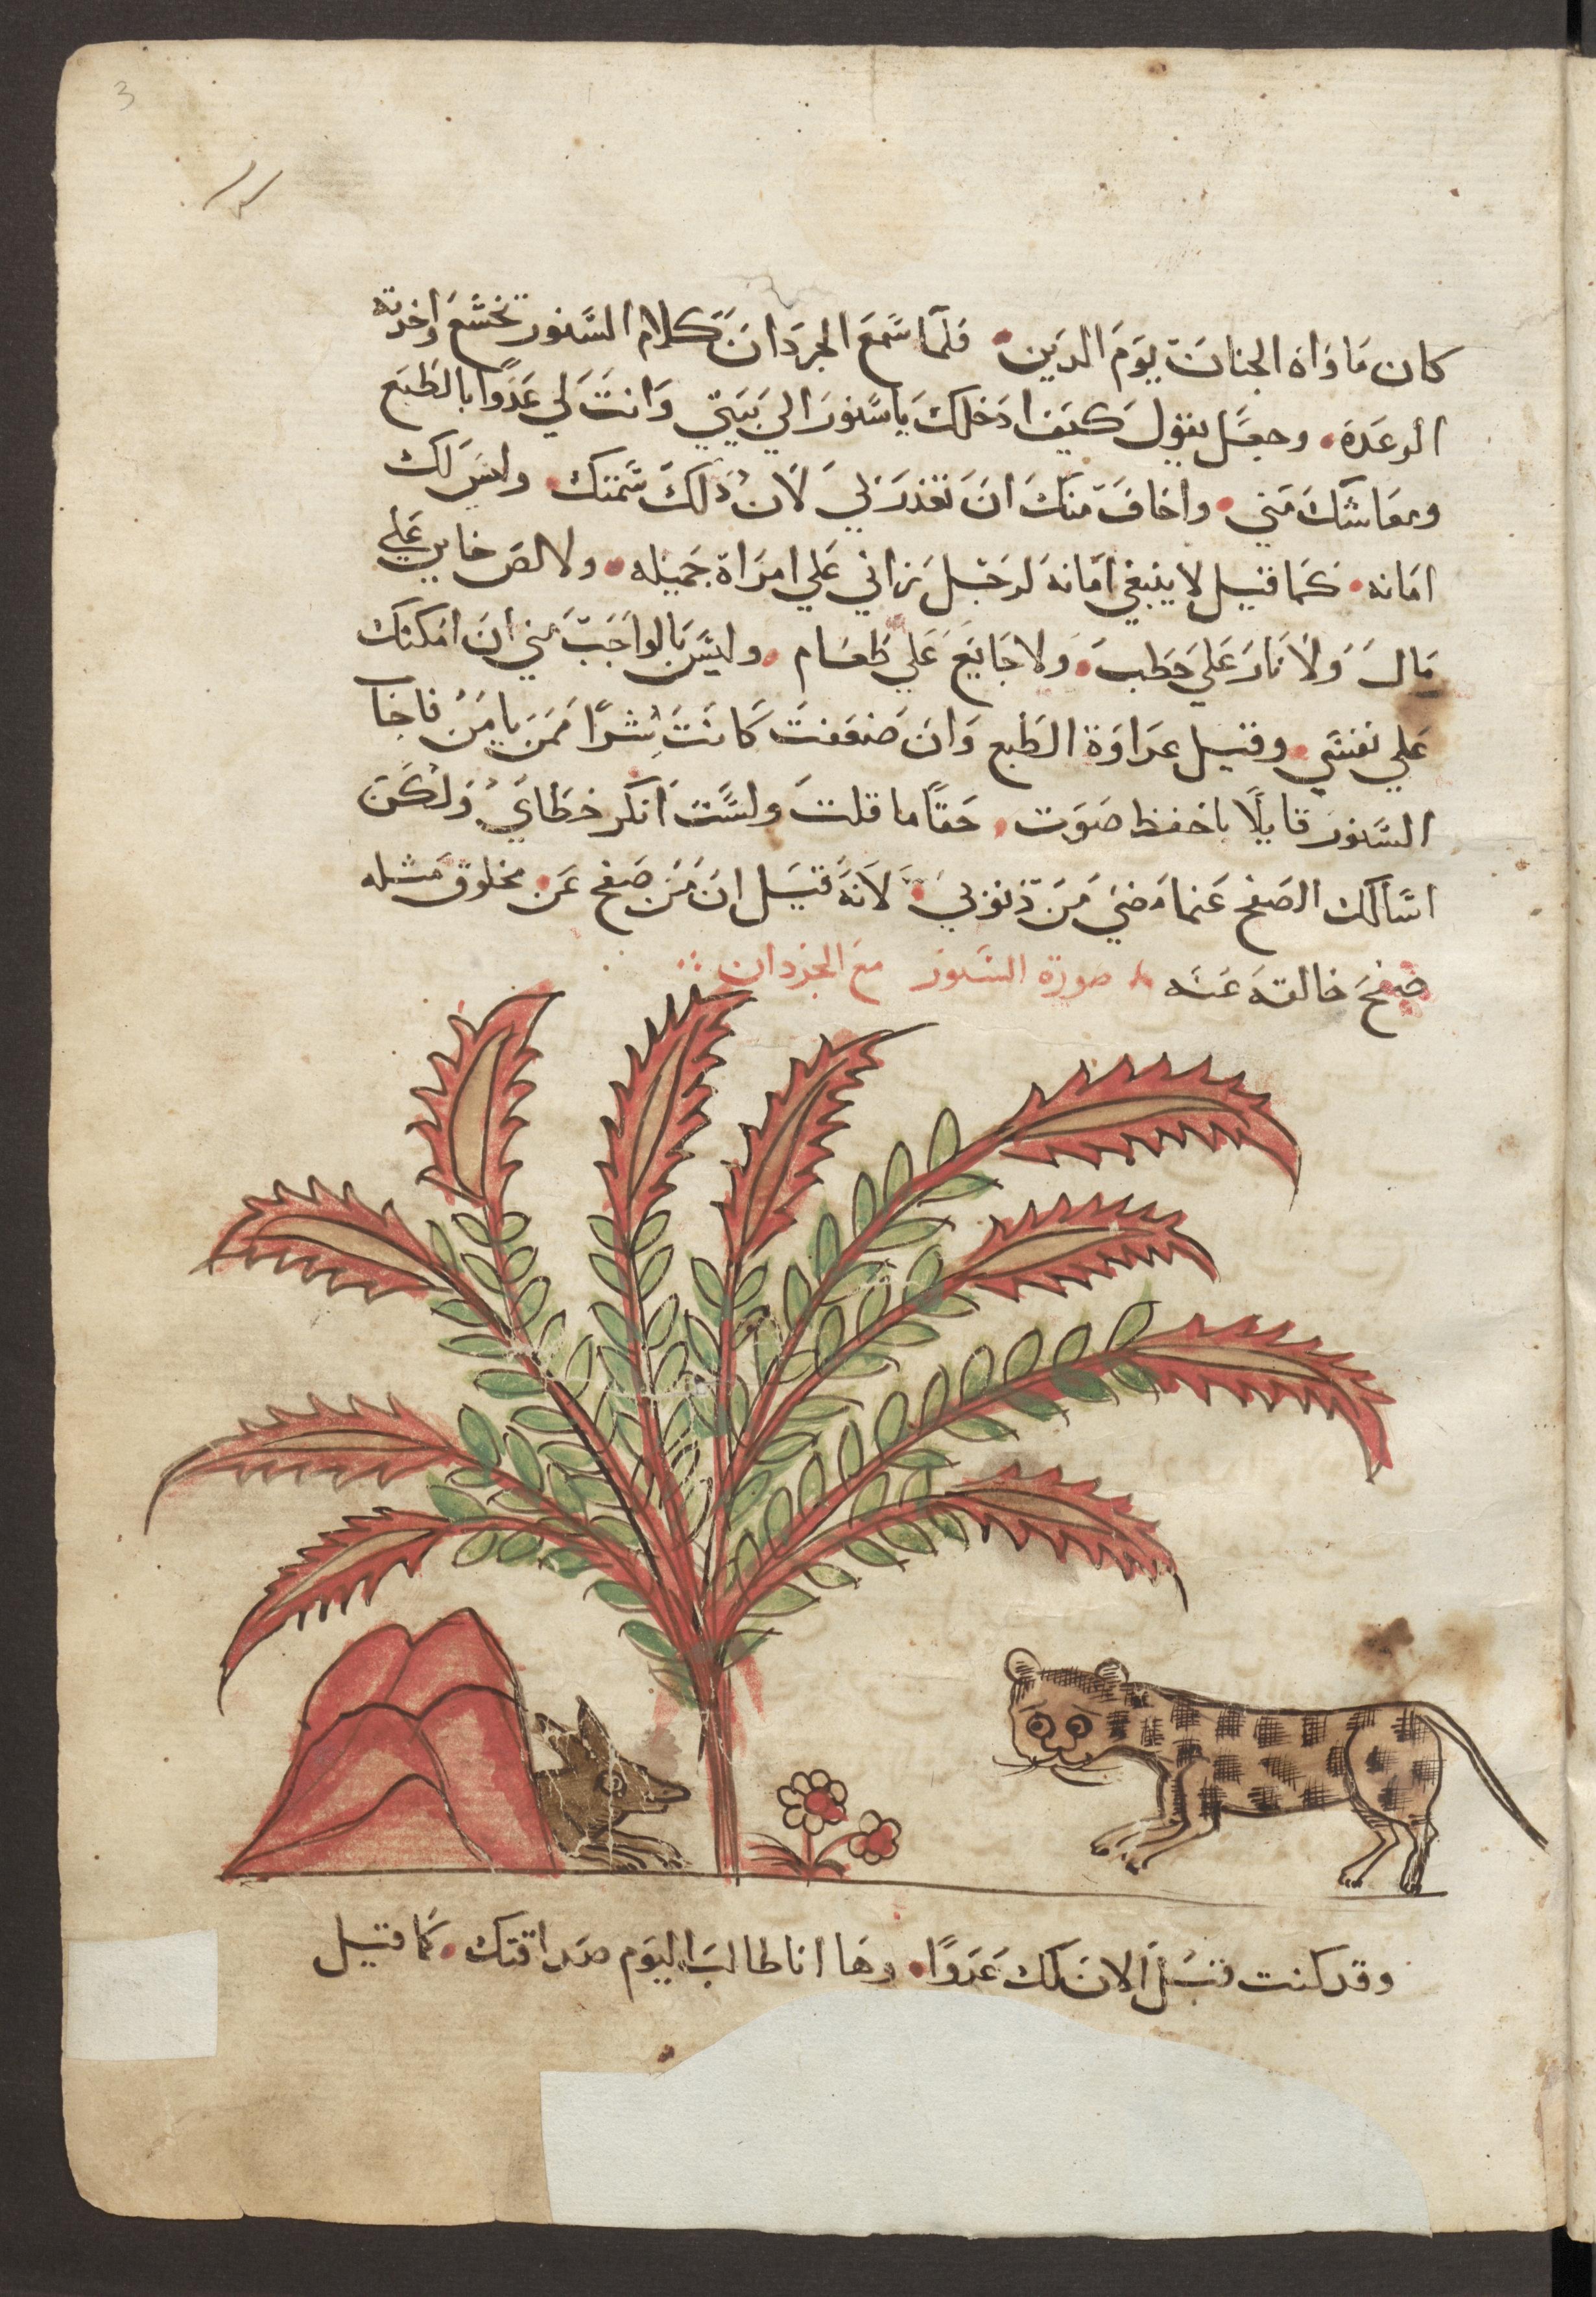 3
كان ماواه الجنان يوم الدين • فلما سمع الجردان كلام السنور تخشع واخدته
الرعدة • وجعل يقول كيف ادخلك ياسنور الي بيتي وانت لي عدوا بالطبع
ومعاشك مني • واخاف منك ان تغدر بي لان ذلك شمتك • وليس لك
امانه • كما قيل لا ينبغي امانه لرجل زاني علي امراة جميله • ولا لص خاين علي
مال ولا نار علي حطب • ولا جايع علي طعام • وليس بالواجب مني ان امكنك
علي نفسي • وقيل عداوة الطبع وان ضعفت كانت شرا فمن يامن فاجا
السنور قايلا باخفظ صوت • حقا ما قلت ولست انكر خطاي ولكن
اسالك الصفح عنما مضي من ذنوبي • لانه قيل ان من صفح عن مخلوق مثله
صفح خالقه عنه صورة السنور مع الجردان
وقد كنت قبل الان لك عدوا • وها انا طالب اليوم صداقتك • كما قيل